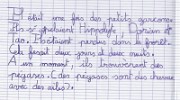 Il était une fois des petits garçons
ils s'appelaient Hippolyte, Dorian et
do. Ils étaient perdus dans la forêt.
Cela faisait deux jours et deux nuits.
A un moment, ils trouvèrent des
pégases. (des pégases sont des chevaux
avec des ailes).